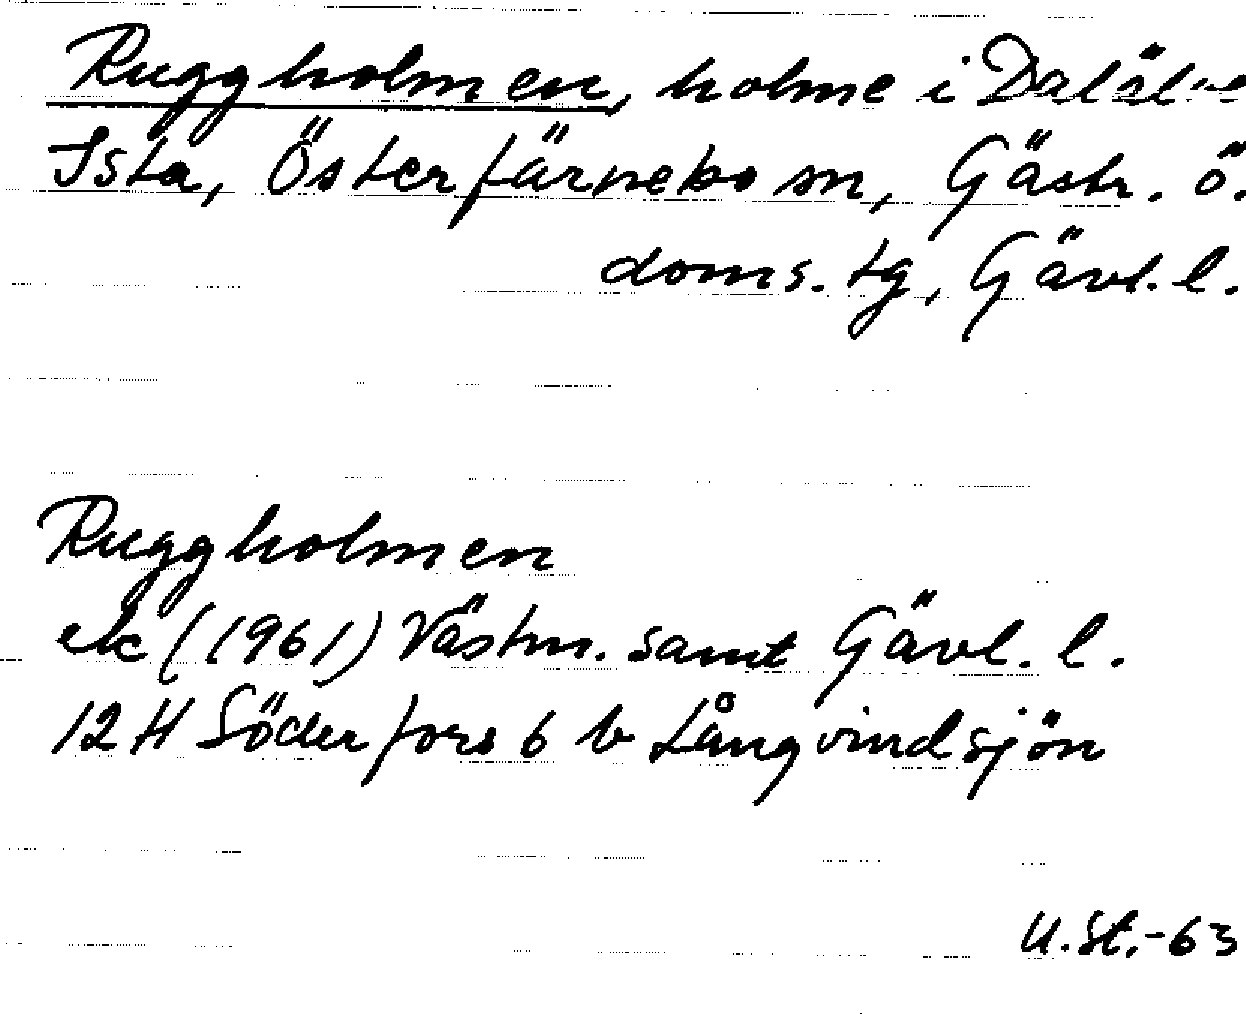 Ruggholmen, holme i Dalälve
Ista, Österfärnebo sn, Gästr. ö.
doms. tg, Gävl. l.
Ruggholmen
ek (1961) Västm. samt Gävl. l.
12 H Söderfors 6 b Långvindsjön
U.St.-63